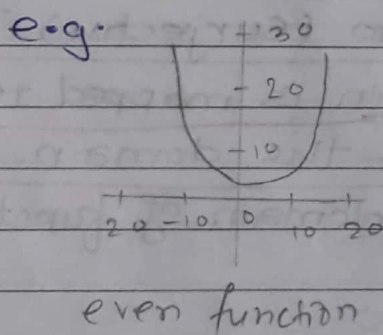 e.g.
30
20
10
20 -10 0 10 20
even function